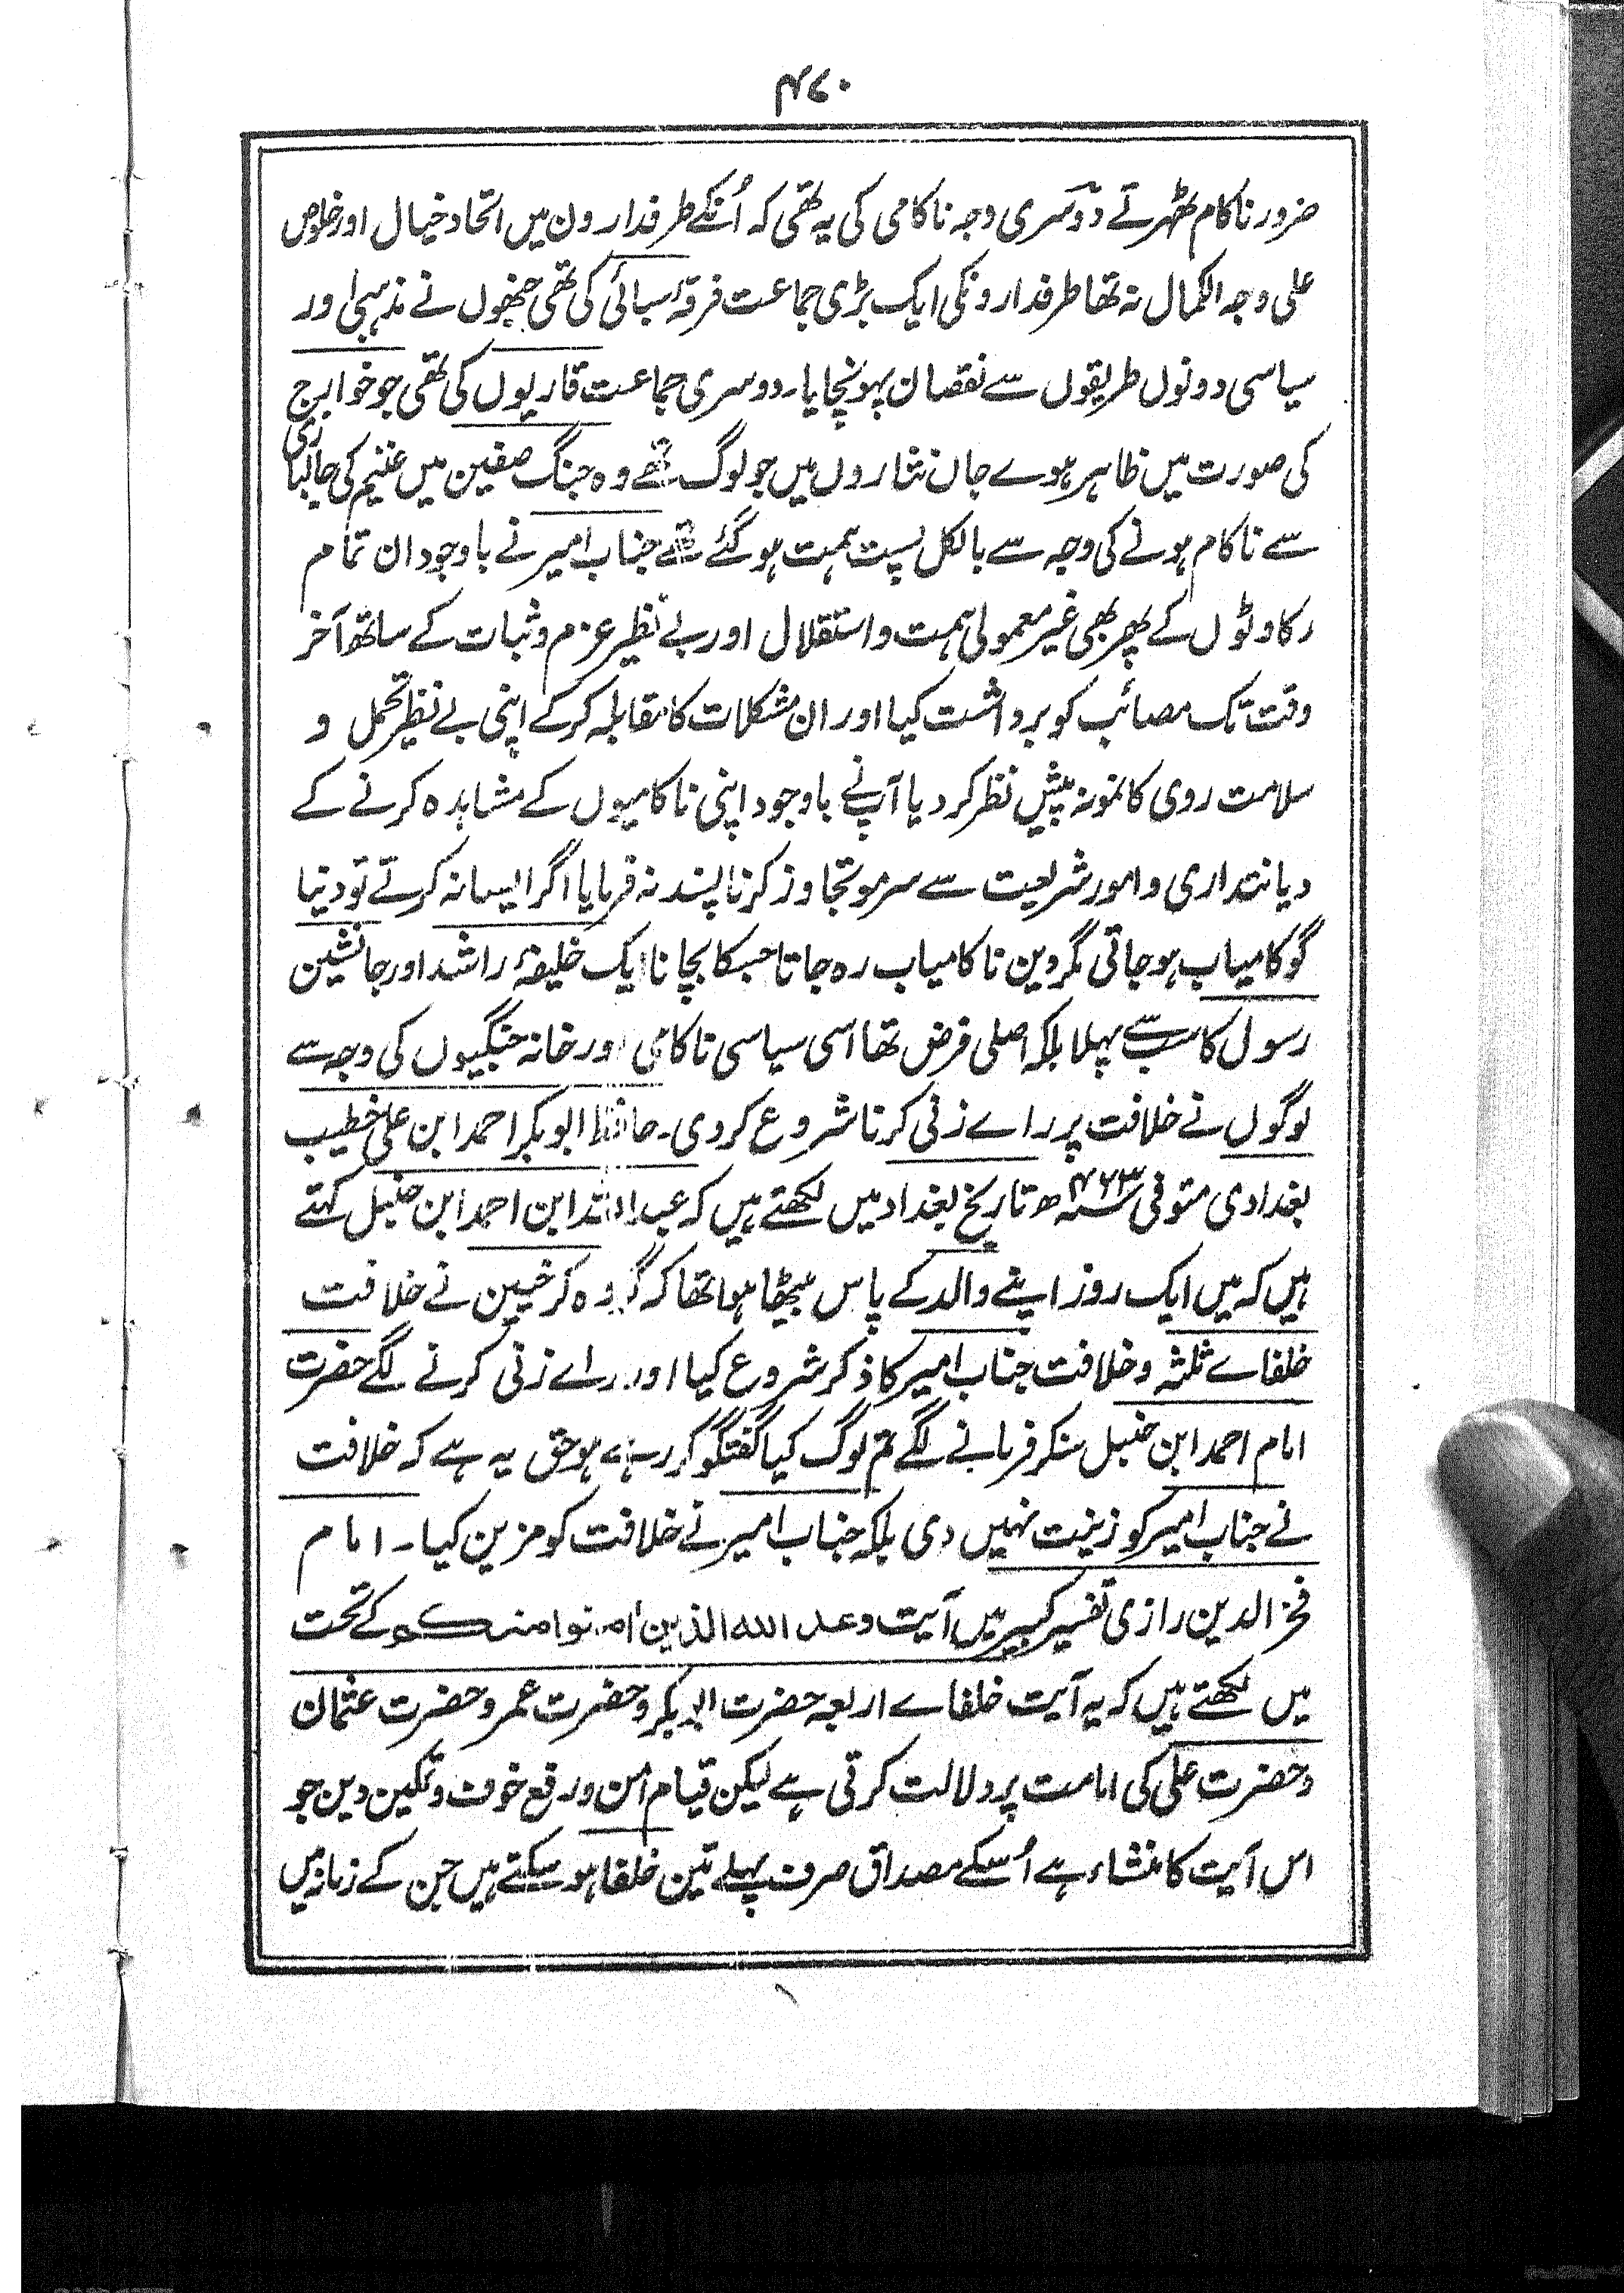 ۴۷۰
ضرور ناکام ٹھہرتے دوسری وجہ ناکامی کی یہ تھی کہ اُنکے طرفدارون میں اتحاد خیال اور خلوص
علی وجہ الکمال نہ تھا طرفدارونکی ایک بڑی جماعت فرقۂ سبائی کی تھی جنھوں نے مذہبی اور
سیاسی دونوں طریقوں سے نقصان پہونچایا۔ دوسری جماعت قاریوں کی تھی جو خوارج
کی صورت میں ظاہر ہوے جان نثاروں میں جو لوگ تھے وہ جنگ صفین میں غنیم کی چالبازی
سے ناکام ہونے کی وجہ سے بالکل پست ہمت ہو گئے تھے جناب امیر نے باوجود ان تمام
رکاوٹوں کے پھر بھی غیر معمولی ہمت و استقلال اور بے نظیر عزم و ثبات کے ساتھ آخر
وقت تک مصائب کو برداشت کیا اور ان مشکلات کا مقابلہ کرکے اپنی بے نظیر تحمل و
سلامت روی کا نمونہ پیش نظر کر دیا آپنے باوجود اپنی ناکامیوں کے مشاہدہ کرنے کے
دیانتداری و امور شریعت سے سرمو تجاوز کرنا پسند نہ فرمایا اگر ایسا نہ کرتے تو دنیا
گو کامیاب ہو جاتی مگر دین ناکامیاب رہ جاتا جسکا بچانا ایک خلیفۂ راشد اور جانشین
رسول کا سب سے پہلا بلکہ اصلی فرض تھا اسی سیاسی ناکامی اور خانہ جنگیوں کی وجہ سے
لوگوں نے خلافت پر راے زنی کرنا شروع کر دی۔ حافظ ابوبکر احمد ابن علی خطیب
بغدادی متوفی ۴۶۳؁ھ تاریخ بغداد میں لکھتے ہیں کہ عبد اللہ ابن احمد ابن حنبل کہتے
ہیں کہ میں ایک روز اپنے والد کے پاس بیٹھا ہوا تھا کہ گروہ کرخیین نے خلافت
خلفاے ثلثہ و خلافت جناب امیر کا ذکر شروع کیا اور راے زنی کرنے لگے حضرت
امام احمد ابن حنبل سنکر فرمانے لگے تم لوگ کیا گفتگو کر رہے ہو حق یہ ہے کہ خلافت
نے جناب امیر کو زینت نہیں دی بلکہ جناب امیر نے خلافت کو مزین کیا۔ امام
فخر الدین رازی تفسیر کبیر میں آیت وعد الله الذین امنوا منکم کے تحت
میں لکھتے ہیں کہ یہ آیت خلفاے اربعہ حضرت ابوبکر و حضرت عمر و حضرت عثمان
و حضرت علی کی امامت پر دلالت کرتی ہے لیکن قیام امن و رفع خوف و تمکین دین جو
اس آیت کا منشاء ہے اُسکے مصداق صرف پہلے تین خلفا ہو سکتے ہیں جن کے زمانہ میں